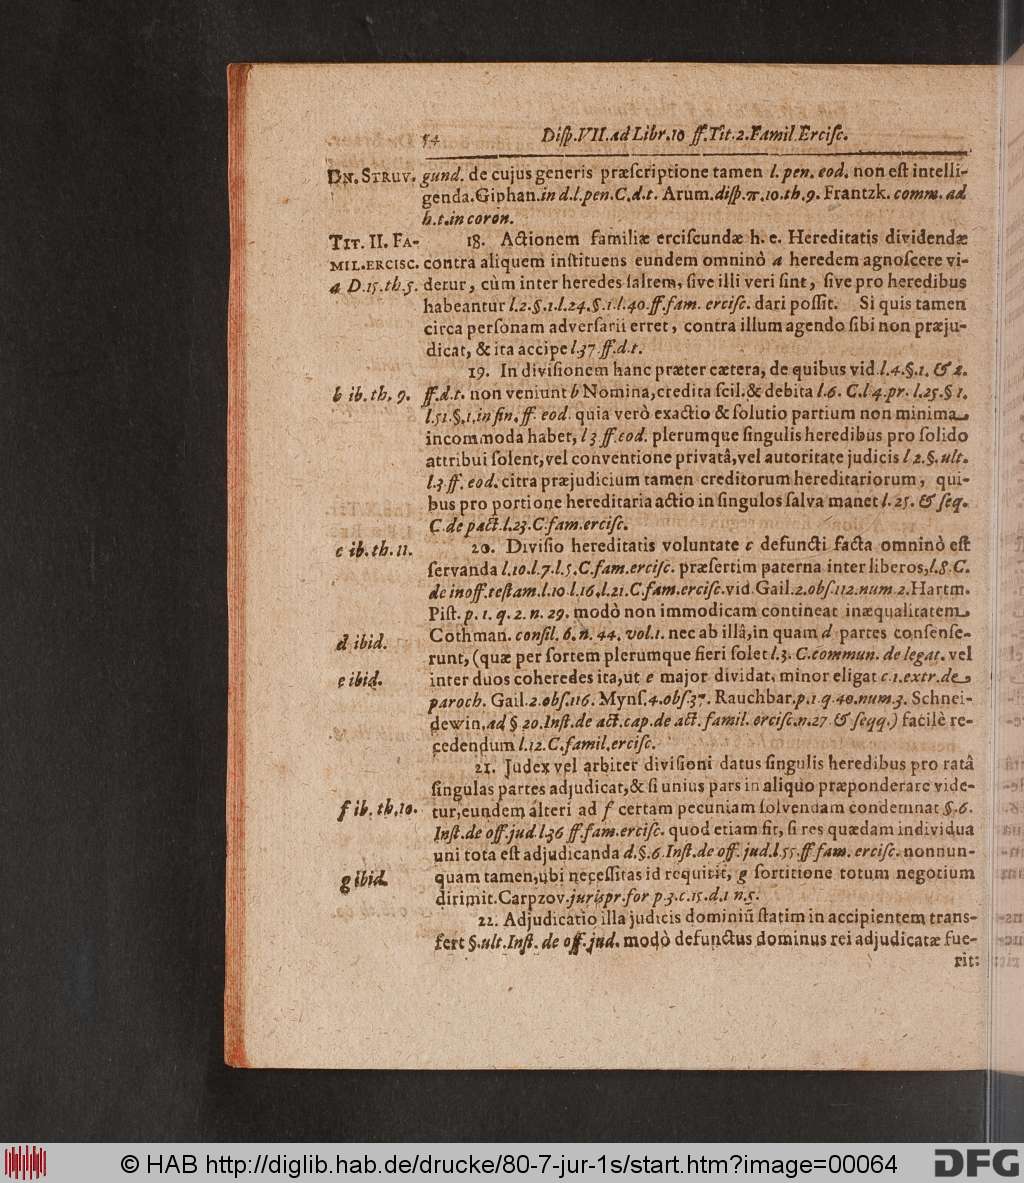 54 Diſp. VII. ad Libr. 10 ff. Tit. 2. Famil. Erciſc.
DN. STRUV. gund. de cujus generis præſcriptione tamen l. pen. eod. non eſt intelli-
genda. Giphan. in d. l. pen. C. d. t. Arum. diſp. π. 10. th. 9. Frantzk. comm. ad
h. t. in coron.
TIT. II. FA- 18. Actionem familiæ erciſcundæ h. e. Hereditatis dividendæ
MIL. ERCISC. contra aliquem inſtituens eundem omninò a heredem agnoſcere vi-
a D. 15. th. 5. detur, cùm inter heredes ſaltem, ſive illi veri ſint, ſive pro heredibus
habeantur l. 2. §. 1. l. 24. §. 1. l. 40. ff. fam. erciſc. dari poſſit. Si quis tamen
circa perſonam adverſarii erret, contra illum agendo ſibi non præju-
dicat, & ita accipe l. 37 ff. d. t.
19. In diviſionem hanc præter cætera, de quibus vid. l. 4. §. 1. & 2.
b ib. th. 9. ff. d. t. non veniunt b Nomina, credita ſcil. & debita l. 6. C. l 4. pr. l. 25. § 1.
l. 51. §. 1. in fin. ff. eod. quia verò exactio & ſolutio partium non minima
incommoda habet, l 3 ff. eod. plerumque ſingulis heredibus pro ſolido
attribui ſolent, vel conventione privatâ, vel autoritate judicis l 2. §. ult.
l. 3. ff. eod. citra præjudicium tamen creditorum hereditariorum, qui-
bus pro portione hereditaria actio in ſingulos ſalva manet l. 25. & ſeq.
C. de pact. l. 23. C. fam. erciſc.
c ib. th. 11. 20. Diviſio hereditatis voluntate c defuncti facta omninò eſt
ſervanda l. 10. l. 7. l. 5. C. fam. erciſc. præſertim paterna inter liberos, l. 8. C.
de inoff. teſtam. l. 10 l. 16. l. 21. C. fam. erciſc. vid. Gail. 2. obſ. 112. num 2. Hartm.
Piſt. p. 1. q. 2. n. 29. modò non immodicam contineat inæqualitatem
Cothman. conſil. 6. n. 44. vol. 1. nec ab illâ, in quam d partes conſenſe-
d ibid.
runt, (quæ per ſortem plerumque fieri ſolet l. 3. C. commun. de legat. vel
e ibid. inter duos coheredes ita, ut e major dividat, minor eligat c. 1. extr. de
paroch. Gail. 2. obſ. 116. Mynſ. 4. obſ. 37. Rauchbar. p. 1. q. 40. num. 3. Schnei-
dewin. ad § 20. Inſt. de act. cap. de act. famil. erciſc. n. 27 & ſeqq.) facilè re-
cedendum l. 12. C. famil. erciſc.
21. Judex vel arbiter diviſioni datus ſingulis heredibus pro ratâ
ſingulas partes adjudicat, & ſi unius pars in aliquo præponderare vide-
f ib. th. 10. tur, eundem alteri ad f certam pecuniam ſolvendam condemnat §. 6.
Inſt. de off. jud. l. 36 ff. fam. erciſc. quod etiam fit, ſi res quædam individua
uni tota eſt adjudicanda d. §. 6. Inſt. de off. jud. l. 55. ff. fam. erciſc. nonnun-
g ibid. quam tamen, ubi neceſſitas id requirit, g ſortitione totum negotium
dirimit. Carpzov. jurispr. for p. 3. c. 15. d. 1 n. 5.
22. Adjudicatio illa judicis dominiũ ſtatim in accipientem trans-
fert §. ult. Inſt. de off. jud. modò defunctus dominus rei adjudicatæ fue-
rit:
© HAB http://diglib.hab.de/drucke/80-7-jur-1s/start.htm?image=00064
DFG